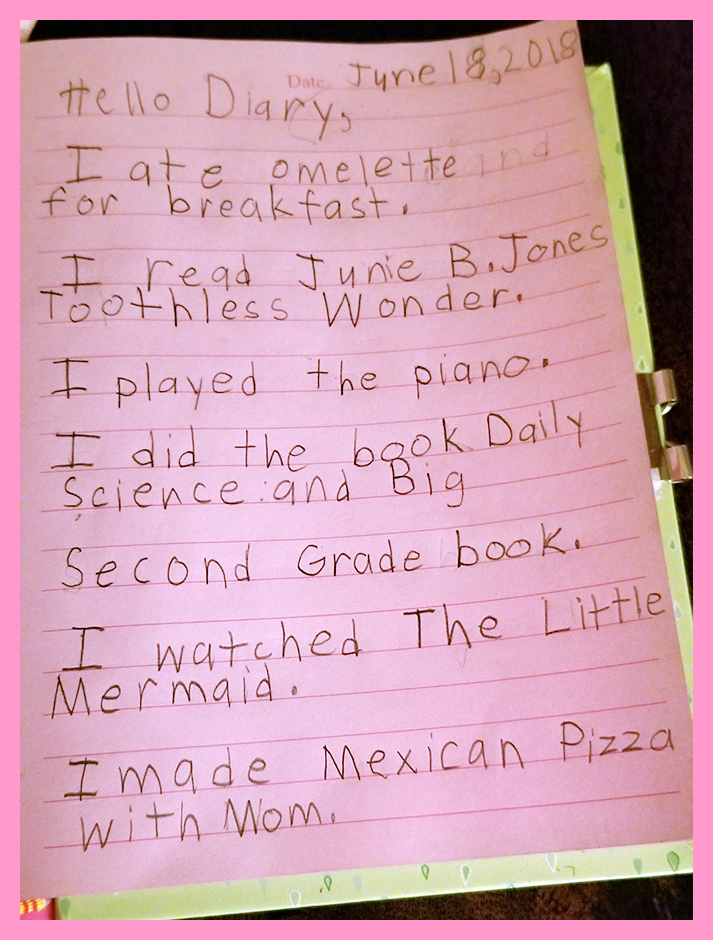 Date June 18, 2018
Hello Diary,
I ate omelette and
for breakfast.
I read Junie B. Jones
Toothless Wonder.
I played the piano.
I did the book Daily
Science and Big
Second Grade book.
I watched The Little
Mermaid.
I made Mexican Pizza
with Mom.